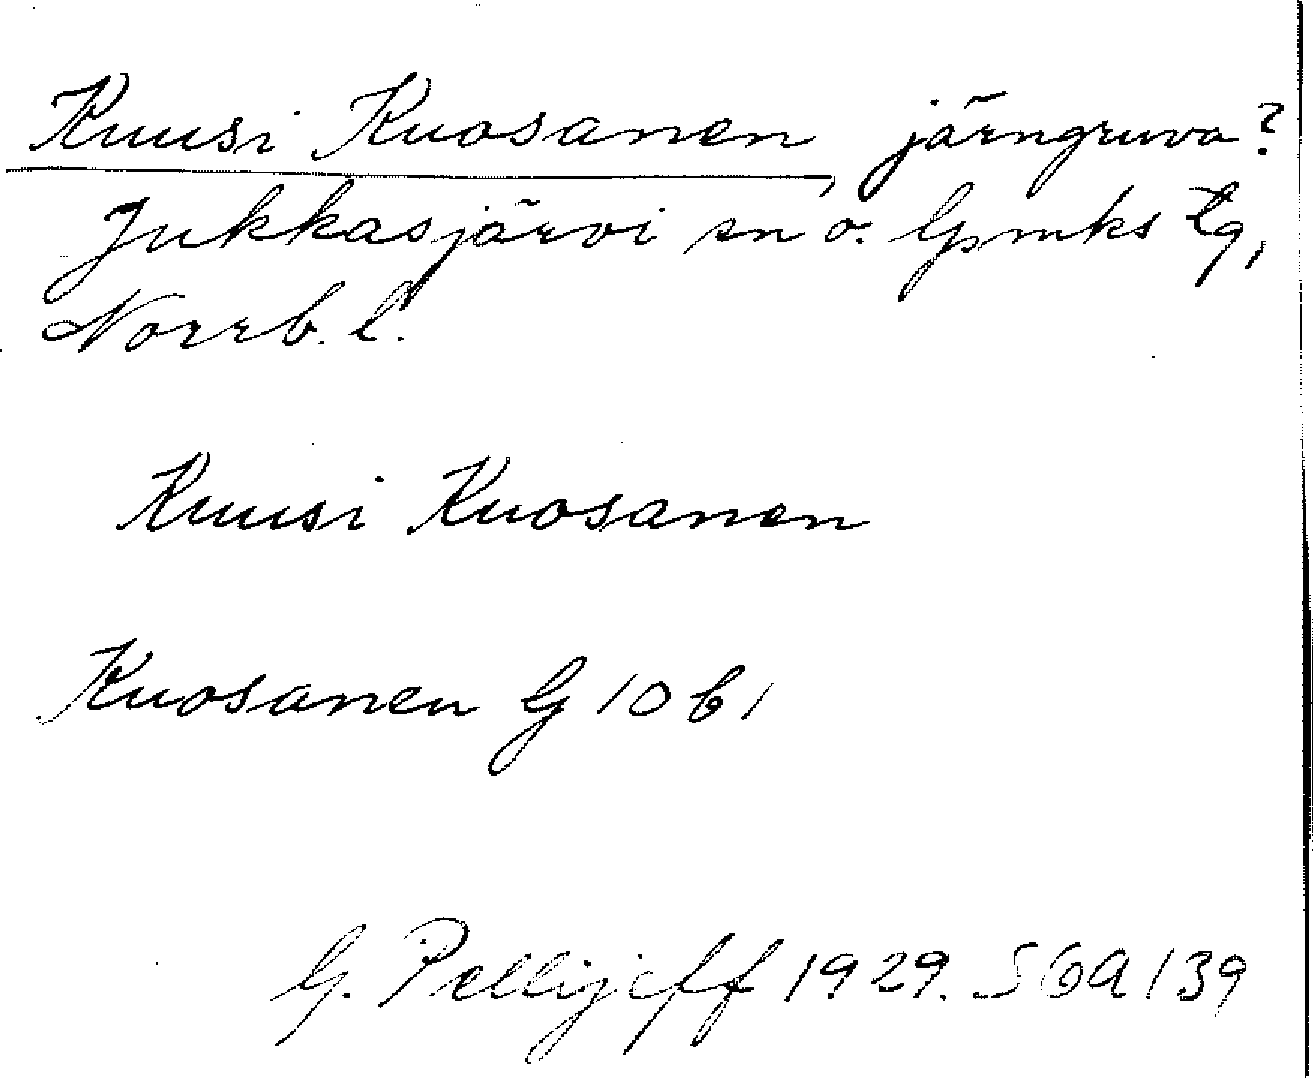 Kuusi Kuosanen, järngruva?
Jukkasjärvi sn o. Gmks tg,
Norrb. l.
Kuusi Kuosanen
Kuosanen G 10 b 1
G. Pellijeff 1929. SGA 139